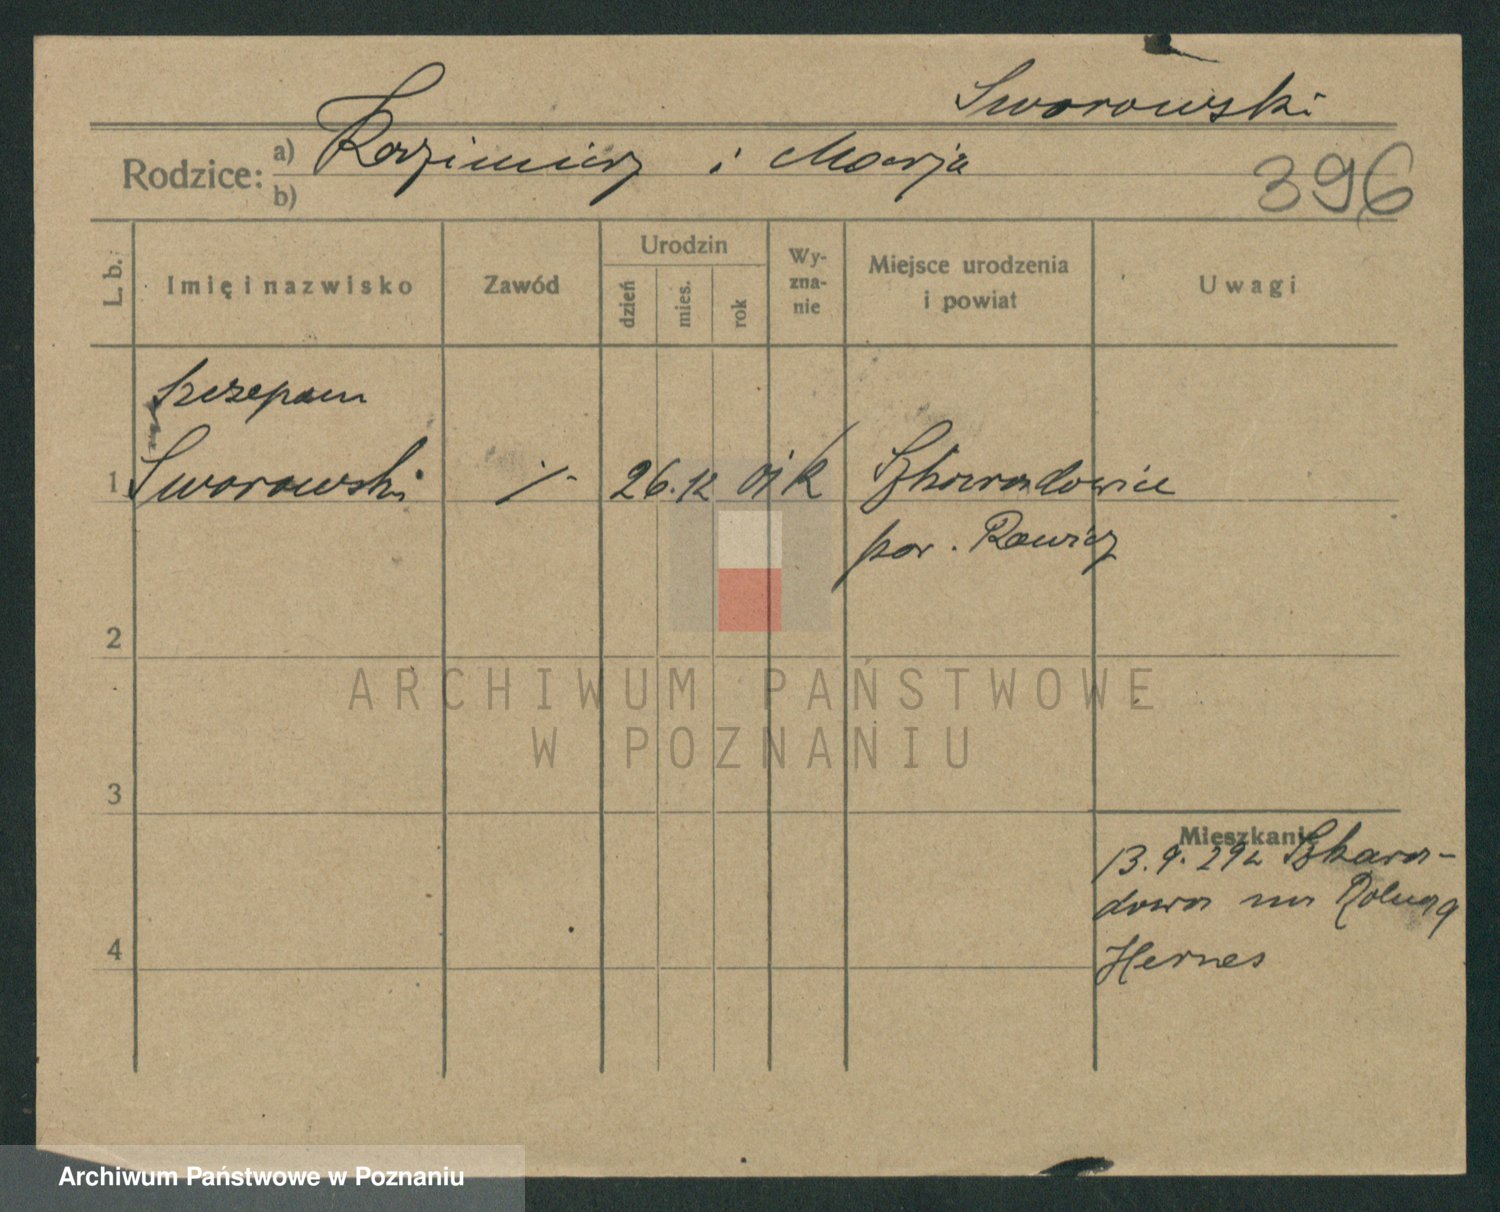 Sworowski
Rodzice: a) Kazimierz i Marja
b)
396
L. b. Imię i nazwisko Zawód Urodzin dzień mies. rok Wy-zna-nie Miejsce urodzenia i powiat Uwagi
Szczepan
1 Sworowski ./- 26. 12 01 K Szkaradowice
pow. Rawicz
2
ARCHIWUM PAŃSTWOWE
W POZNANIU
3
Mieszkanie
13. 9. 29 Szkara-
dowa
4
Archiwum Państwowe w Poznaniu